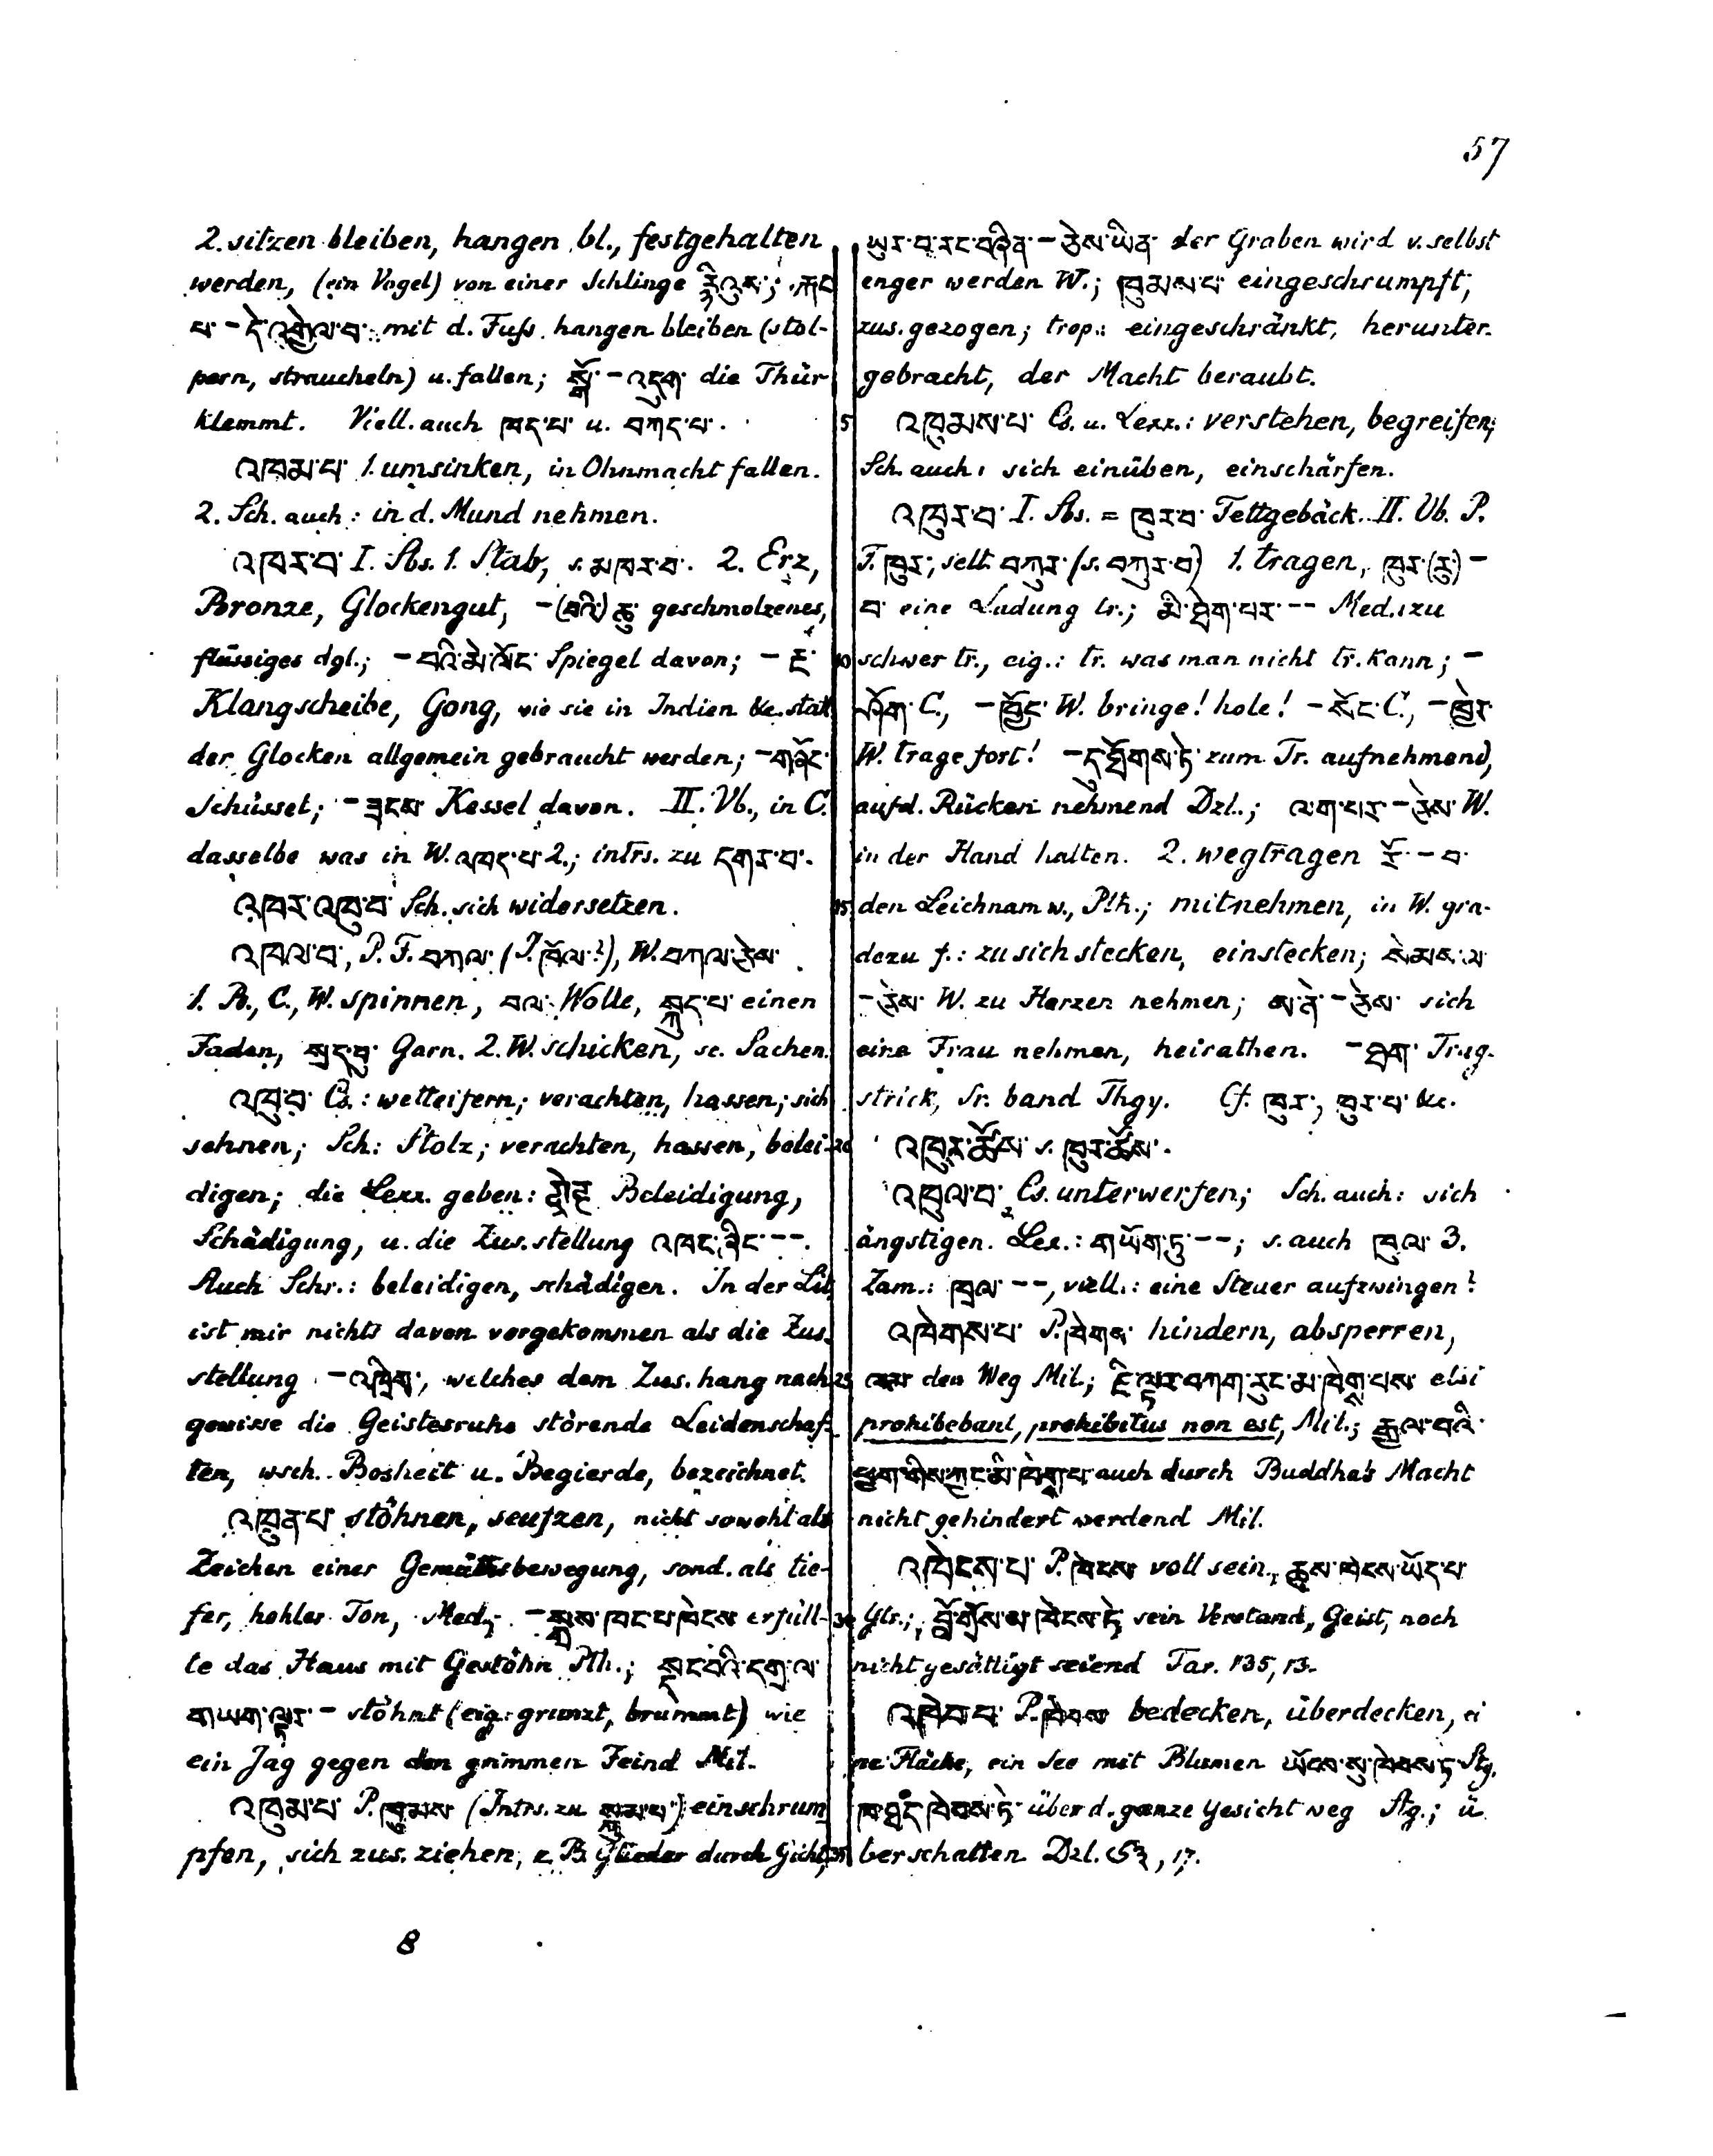 57
2. sitzen bleiben, hangen bl., festgehalten
werden, (ein Vogel) von einer Schlinge རྙིའུས་; རྐང་
པ་ – དེ་འགྱེལ་བ་ mit d. Fuss hangen bleiben (stol-
pern, straucheln) u. fallen; སྒོ་ – འདུག་ die Thür
klemmt. Viell. auch ཁད་པ་ u. བཀད་པ་.
འཁམ་པ་ 1. umsinken, in Ohnmacht fallen.
2. Sch. auch: in d. Mund nehmen.
འཁར་བ་ I. Sbs. 1. Stab, s. མཁར་བ་. 2. Erz,
Bronze, Glockengut, – (བའི་) ཆུ་ geschmolzenes,
flüssiges dgl.; – བའི་མེ་ལོང་ Spiegel davon; – རྔ་
Klangscheibe, Gong, wie sie in Indien &c. statt
der Glocken allgemein gebraucht werden; – གཞོང་
Schüssel; – ཟངས་ Kessel davon. II. Vb., in C.
dasselbe was in W. འཁད་པ་ 2.; intrs. zu དགར་བ་.
འཁར་འཁུ་བ་ Sch. sich widersetzen.
འཁལ་བ་, P. F. བཀལ་ (I. ཁོལ་?), W. བཀལ་ཅེས་
1. B., C., W. spinnen, བལ་ Wolle, སྐུད་པ་ einen
Faden, སྲད་བུ་ Garn. 2. W. schicken, sc. Sachen.
འཁུ་བ་ Cs.: wetteifern; verachten, hassen; sich
sehnen; Sch: Stolz; verachten, hassen, belei-
digen; die Lexx. geben: Beleidigung,
Schädigung, u. die Zus.stellung འཁང་ཞིང་ – –.
Auch Schr.: beleidigen, schädigen. In der Lit.
ist mir nichts davon vorgekommen als die Zus.
stellung – འཁྲིག་, welches dem Zus.hang nach
gewisse die Geistesruhe störende Leidenschaf-
ten, wsch. Bosheit u. Begierde, bezeichnet.
འཁུན་པ་ stöhnen, seufzen, nicht sowohl als
Zeichen einer Gemüthsbewegung, sond. als tie-
fer, hohler Ton, Med; – སྒྲས་ཁང་པ་ཁེངས་ erfüll-
te das Haus mit Gestöhn Pth.; སྡང་བའི་དགྲ་ལ་
གཡག་ལྟར་ – stöhnt (eig: grunzt, brummt) wie
ein Jag gegen den grimmen Feind Mil.
འཁུམ་པ་ P. ཁུམས་ (Intrs. zu སྐུམ་པ་) einschrum
pfen, sich zus. ziehen, z. B. Glieder durch Gicht,
ཡུར་བ་རང་བཞིན་ – ཅེས་ཡིན་ der Graben wird v. selbst
enger werden W.; ཁུམས་པ་ eingeschrumpft,
zus. gezogen; trop.: eingeschränkt, herunter-
gebracht, der Macht beraubt.
5 འཁུམས་པ་ Cs. u. Lexx.: verstehen, begreifen;
Sch. auch: sich einüben, einschärfen.
འཁུར་བ་ I. Sbs. = ཁུར་བ་ Fettgebäck. II. Vb. P.
F. ཁུར་, selt. བཀུར་ (s. བཀུར་བ་) 1. tragen, ཁུར་(རུ་) –
བ་ eine Ladung tr.; མི་ཐེག་པར་ – – Med. zu
10 schwer tr., eig.: tr. was man nicht tr. kann; –
ཤོག་ C., – ཁྱོང་ W. bringe! hole! – སོང་ C., – ཁྱེར་
W. trage fort! – དུ་ཐོགས་ཏེ་ zum Tr. aufnehmend,
auf d. Rücken nehmend Dzl.; ལག་པར་ – ཅེས་ W.
in der Hand halten. 2. wegtragen རོ་ – བ་
15 den Leichnam w., Pth.; mitnehmen, in W. gra-
dezu f.: zu sich stecken, einstecken; སེམས་ལ་
– ཅེས་ W. zu Herzen nehmen; མ་ནེ་ – ཅེས་ sich
eine Frau nehmen, heirathen. – ཐག་ Trag-
strick, Tr. band Thgy. Cf. ཁུར་, ཁུར་པ་ &c.
20 འཁུར་ཚོས་ s. ཁུར་ཚོས་.
འཁུལ་བ་ Cs. unterwerfen; Sch. auch: sich
ängstigen. Lex.: གཡོག་ཏུ་ – –; s. auch ཁུལ་ 3.
Zam.: ཁྲལ་ – –, viell.: eine Steuer aufzwingen?
འཁེགས་པ་ P. ཁེགས་ hindern, absperren,
25 ལམ་ den Weg Mil.; ཇི་ལྟར་བཀག་རུང་མ་ཁེགས་པས་ etsi
prohibebant, prohibitus non est, Mil.; རྒྱལ་བའི་
ཕྱག་གིས་ཀྱང་མི་ཁེགས་པ་ auch durch Buddha's Macht
nicht gehindert werdend Mil.
འཁེངས་པ་ P. ཁེངས་ voll sein, ཆུས་ཁེངས་ཡོད་པ་
30 Glr.; བློ་གྲོས་མ་ཁེངས་ཏེ་ sein Verstand, Geist, noch
nicht gesättigt seiend Tar. 135, 13.
འཁེབ་པ་ P. ཁེབས་ bedecken, überdecken, ei
ne Fläche, ein See mit Blumen ཡོངས་སུ་ཁེབས་ཏེ་ Stg.
ཁ་ཐང་ཁེབས་ཏེ་ über d. ganze Gesicht weg Stg.; ü
35 berschatten Dzl. 53, 17.
8